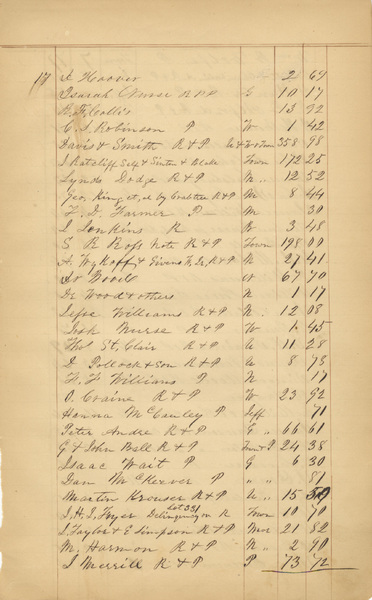 D Hoover 2 69
Isaiah Nurse R & P G 10 17
B. F. Collis 13 92
C. S. Robinson P W 1 42
Davis & Smith R & P 358 98
J Ratcliff Self & Town 172 25
Lynds Dodge R & P M " 12 52
Geo. King by Crabtree R & P M 8 44
F. D. Farmer P — M 30
L Jonkins R 3 48
S R Ross Note R & P Town 198 00
A. Wykoff & R & P N 27 41
Dr Woods 67 70
De Wood & others N 1 17
Jesse Williams R & P N " 12 08
Isah Nurse R & P W 1 45
Thos St. Clair R & P 11 28
D Pollock & Son R & P 8 73
H. W Williams P N 17
O. Craine R & P W 23 92
Hanna McCauley P Jeff 71
Peter Andre R & P G " 66 61
G & John Ball R & P Town & P 24 38
Isaac Wait P G 6 30
Dan McKeever P " " 81
Martin Krouser R & P " 15
lot 351
J. H. J. Fryer Delinquency on R Town 10 70
J. Taylor & E Simpson R & P Mer 21 82
M. Harmon R & P N " 2 90
J Merrill R & P P 73 72